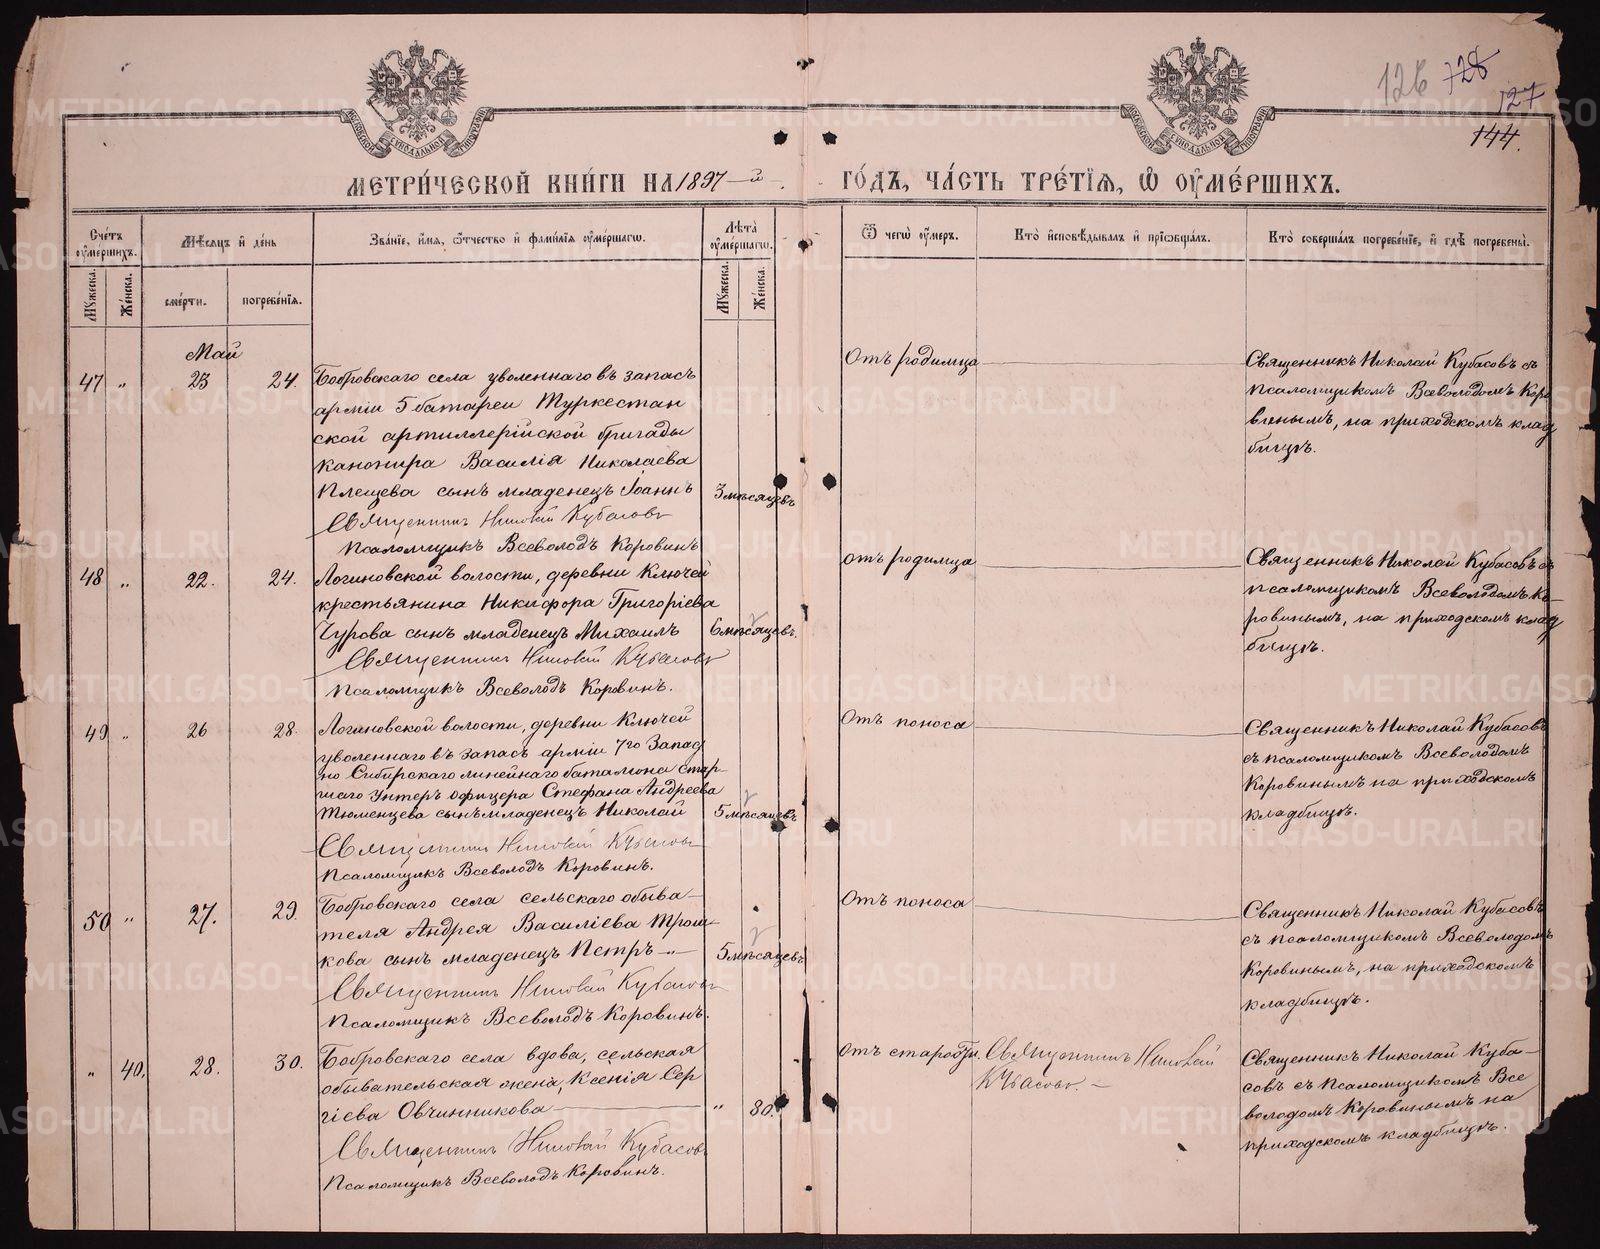 126 728
127
144.
МЕТРИ́ЧЕСКОЙ КНИ́ГИ НА 1897-й ГО́ДЪ, ЧА́СТЬ ТРЕ́ТІѦ, Ѽ ОУМЕ́РШИХЪ.
Сче́тъ оумершихъ.
Мѣсяцъ и҆ де́нь
Зва́нїе, и҆́мѧ, ѻ҆́тчество и҆ фами́лїѧ оуме́ршагѡ.
Лѣта̀ оуме́ршагѡ.
Ѿ чегѡ̀ оу҆́меръ.
Кто̀ и҆сповѣ́дывалъ и҆ прїѡбща́лъ.
Кто̀ соверша́лъ погребе́нїе, и҆ гдѣ̀ погребены̀.
Мꙋ́жеска.
Же́нска.
сме́рти.
погребе́нїѧ.
Мꙋ́жеска.
Же́нска.
Май
47 " 23 24.
Бобровскаго села уволеннаго въ запасъ
арміи 5 батареи Туркестан
ской артиллерійской бригады
канонира Василія Николаева
Плещева сынъ младенецъ Іоаннъ
3 мѣсяцевъ
Священникъ Николай Кубасовъ
Псаломщикъ Всеволодъ Коровинъ
Отъ родимца
Священникъ Николай Кубасовъ съ
псаломщикомъ Всеволодомъ Коро
винымъ, на приходскомъ клад
бищѣ.
48 " 22. 24.
Логиновской волости, деревни Ключей
крестьянина Никифора Григоріева
Чурова сынъ младенецъ Михаилъ
6 мѣсяцевъ
Священникъ Николай Кубасовъ
Псаломщикъ Всеволодъ Коровинъ.
отъ родимца
Священникъ Николай Кубасовъ съ
псаломщикомъ Всеволодомъ Ко-
ровинымъ, на приходскомъ клад
бищѣ.
49 " 26 28.
Логиновской волости, деревни Ключей
уволеннаго въ запасъ арміи 7го Запад
но Сибирскаго линейнаго баталіона стар-
шаго унтеръ офицера Стефана Андреева
Тюменцева сынъ младенецъ Николай
5 мѣсяцевъ
Священникъ Николай Кубасовъ
Псаломщикъ Всеволодъ Коровинъ.
Отъ поноса
Священникъ Николай Кубасовъ
съ псаломщикомъ Всеволодомъ
Коровинымъ на приходскомъ
кладбищѣ.
50 " 27. 29.
Бобровскаго села сельскаго обыва-
теля Андрея Василіева Трош-
кова сынъ младенецъ Петръ
5 мѣсяцевъ
Священникъ Николай Кубасовъ
Псаломщикъ Всеволодъ Коровинъ.
Отъ поноса
Священникъ Николай Кубасовъ
съ псаломщикомъ Всеволодомъ
Коровинымъ, на приходскомъ
кладбищѣ.
" 40. 28. 30.
Бобровскаго села вдова, сельская
обывательская жена, Ксенія Сер
гіева Овчинникова
" 80.
Священникъ Николай Кубасовъ
Псаломщикъ Всеволодъ Коровинъ.
Отъ старости.
Священникъ Николай
Кубасовъ.
Священникъ Николай Куба-
совъ съ псаломщикомъ Все
володомъ Коровинымъ на
приходскомъ кладбищѣ.
METRIKI.GASO-URAL.RU